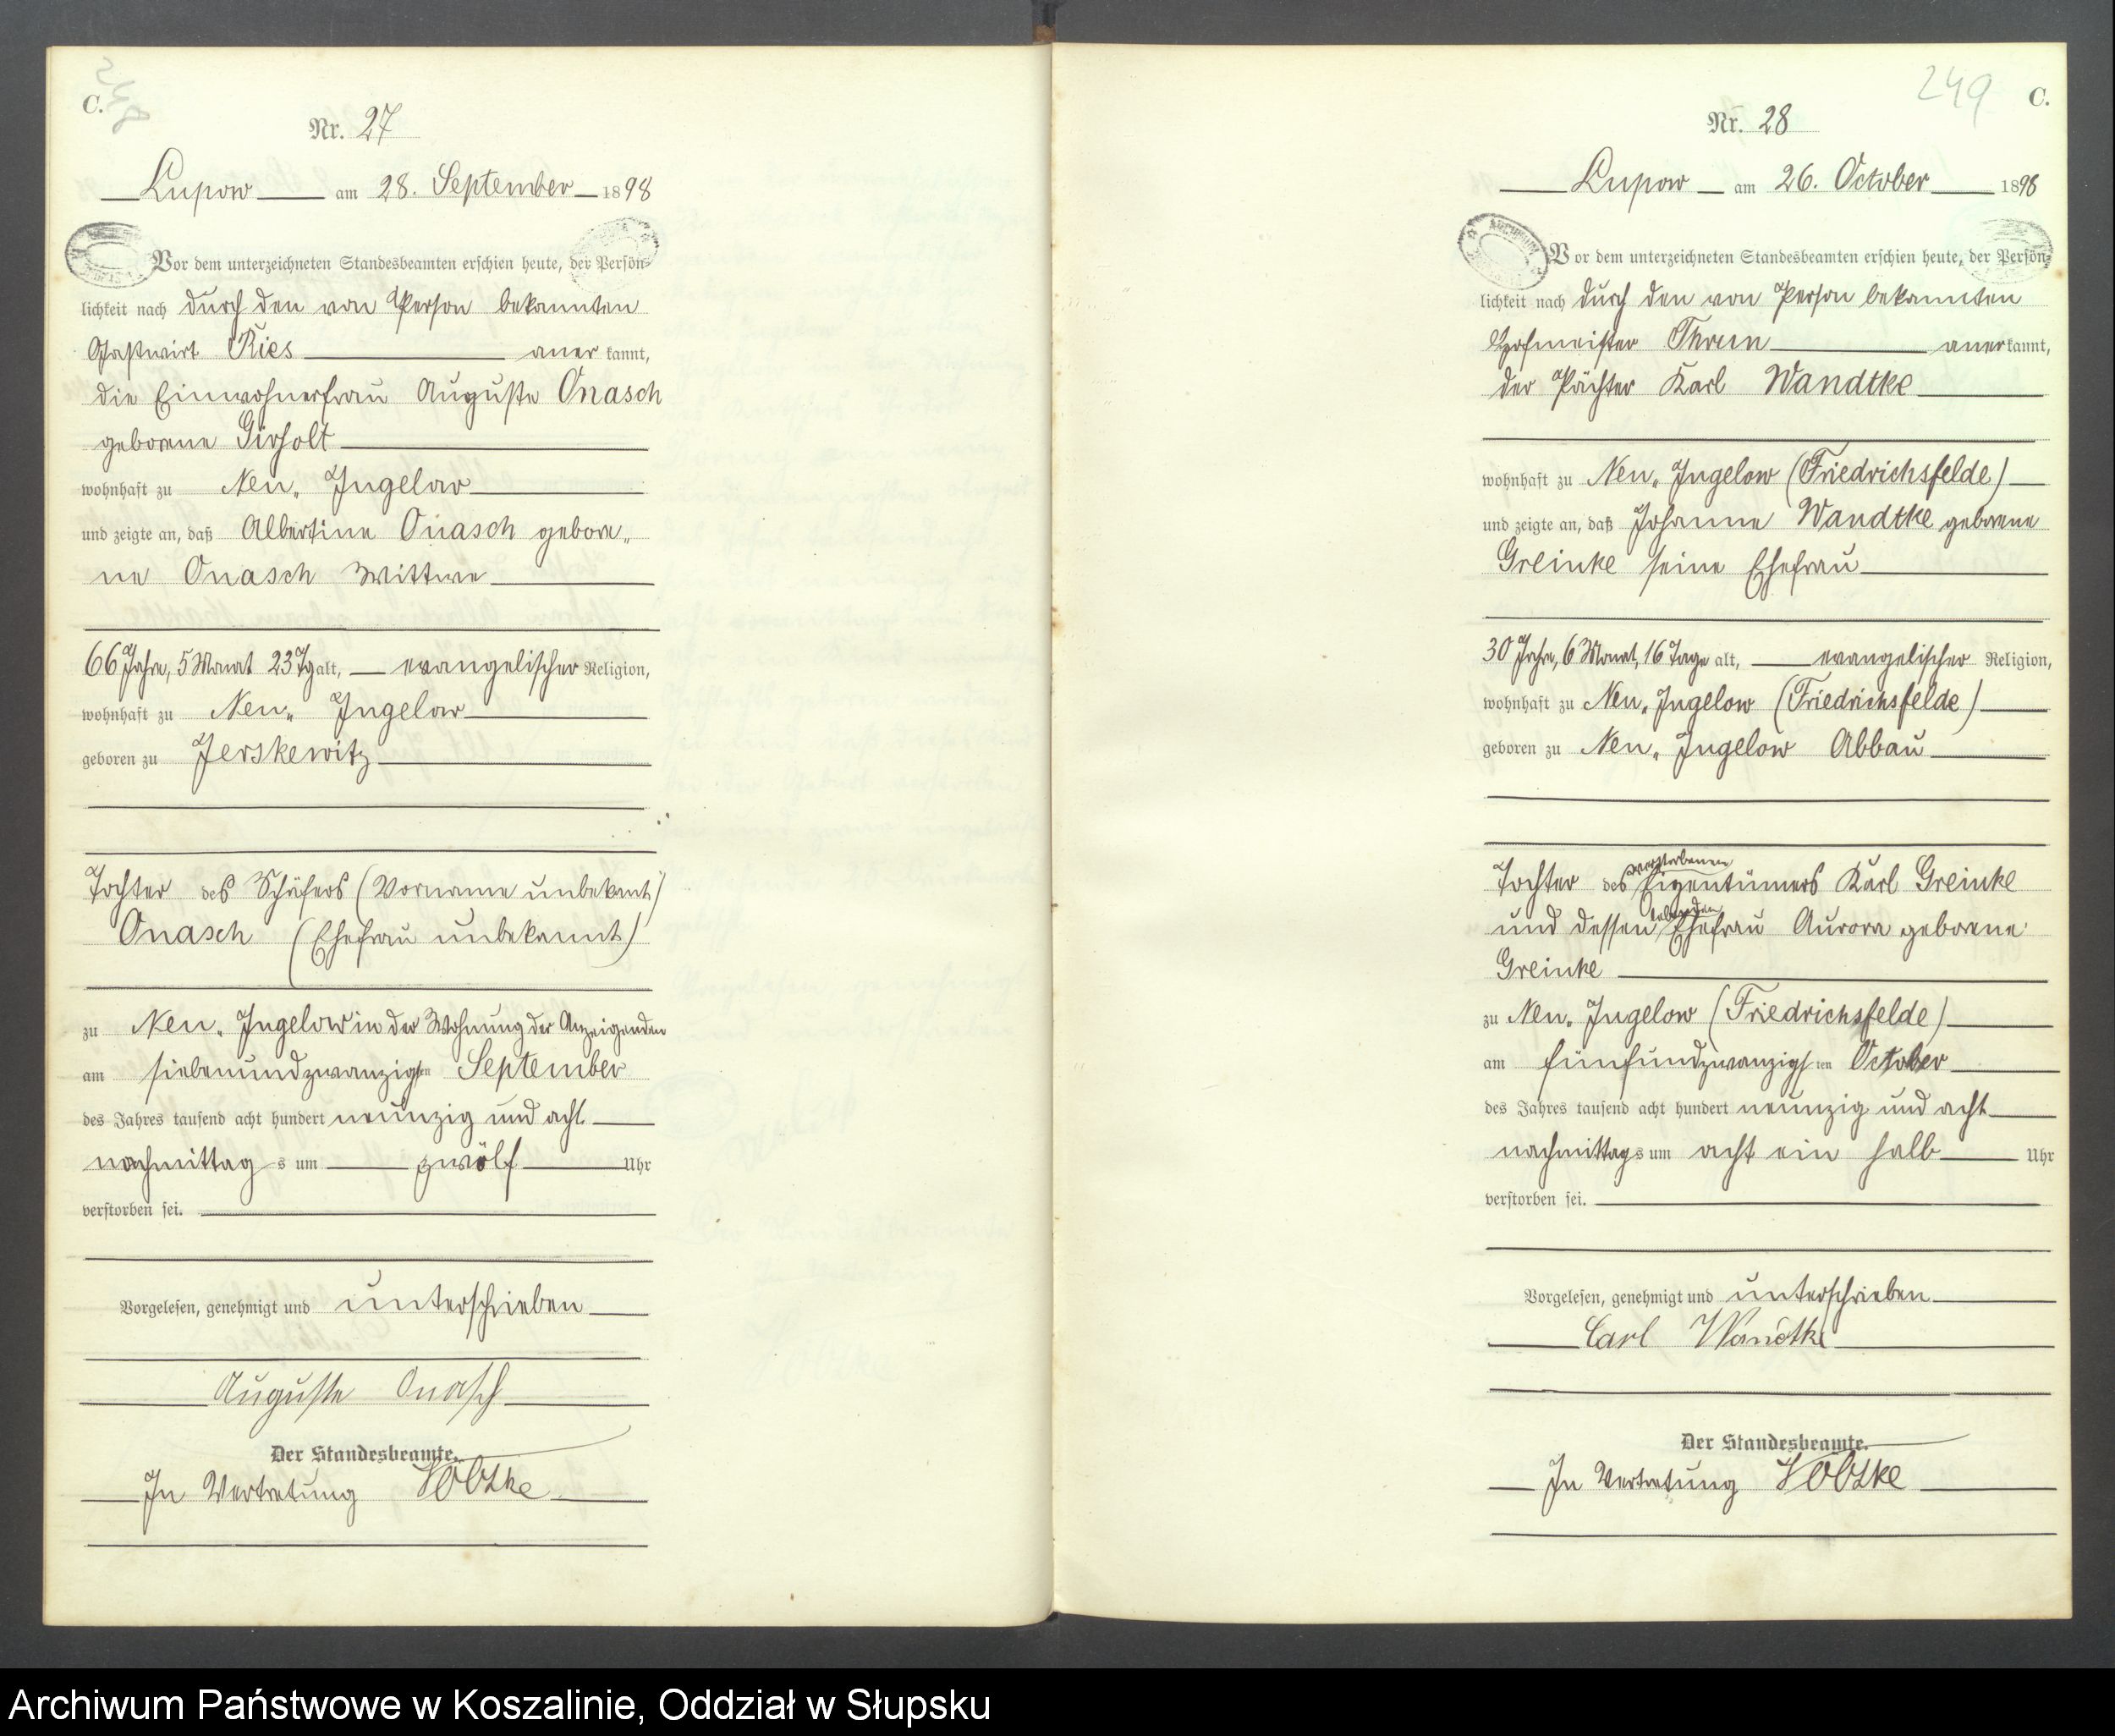 C.
Nr. 27
Lupow am 28. September 1898
Vor dem unterzeichneten Standesbeamten erschien heute, der Persön-
lichkeit nach durch den von Person bekannten
Gastwirt Ries anerkannt,
die Einwohnerfrau Auguste Onasch
geborene Girholt
wohnhaft zu Neu„ Jugelow
und zeigte an, daß Albertine Onasch gebore„
ne Onasch Wittwe
66 Jahre, 5 Monat 23 Tg alt, evangelischer Religion,
wohnhaft zu Neu„ Jugelow
geboren zu Jerskewitz
Tochter des Schäfers (Vorname unbekant)
Onasch (Ehefrau unbekannt)
zu Neu„ Jugelow in der Wohnung der Anzeigenden
am siebenundzwanzigsten September
des Jahres tausend acht hundert neunzig und acht
nachmittags um zwölf Uhr
verstorben sei.
Vorgelesen, genehmigt und unterschrieben
Auguste Onasch
Der Standesbeamte.
In Vertretung
249 C.
Nr. 28
Lupow am 26. October 1898
ARCHIWUM
Vor dem unterzeichneten Standesbeamten erschien heute, der Persön-
lichkeit nach durch den von Person bekannten
Hofmeister Thrun anerkannt,
der Pächter Karl Wandtke
wohnhaft zu Neu„ Jugelow (Friedrichsfelde)
und zeigte an, daß Johanne Wandtke geborene
Greinke seine Ehefrau
30 Jahre, 6 Monat, 16 Tage alt, evangelischer Religion,
wohnhaft zu Neu„ Jugelow (Friedrichsfelde)
geboren zu Neu„ Jugelow Abbau
Tochter des verstorbenen Eigentümers Karl Greinke
und dessen lebenden Ehefrau Aurora geborene
Greinke
zu Neu„ Jugelow (Friedrichsfelde)
am fünfundzwanzigsten October
des Jahres tausend acht hundert neunzig und acht
nachmittags um acht ein halb Uhr
verstorben sei.
Vorgelesen, genehmigt und unterschrieben
Carl Wandtke
Der Standesbeamte.
In Vertretung
Archiwum Państwowe w Koszalinie, Oddział w Słupsku